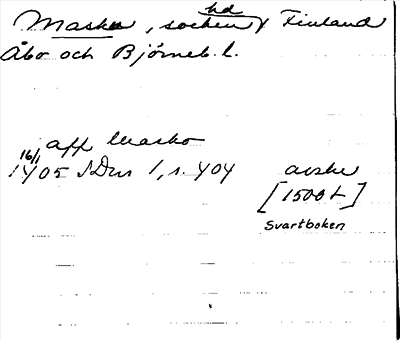 Masku, socken hd Finland
Åbo och Björneb. l.
aff Masko
16/1
1405 SDns 1, s. 404 avskr
[1500 t]
Svartboken